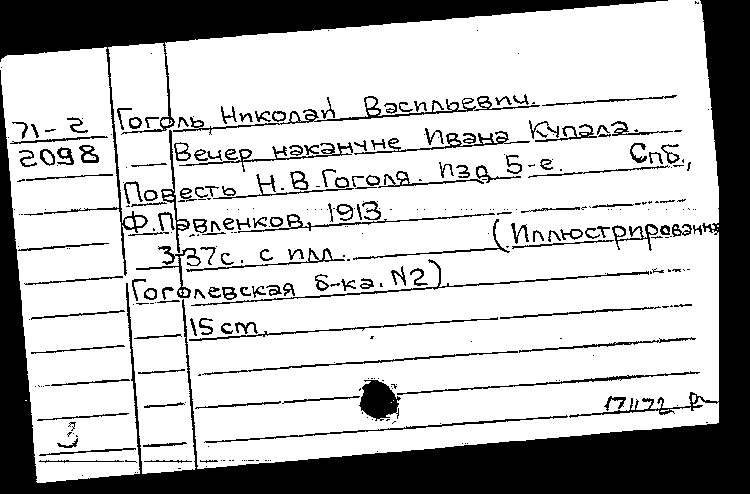 71-2 Гоголь, Николай Васильевич.
2098 Вечер накануне Ивана Купала.
Повесть Н.В.Гоголя. Изд. 5-е. Спб.,
Ф.Павленков, 1913.
3-37с. с илл. (Иллюстрированная
Гоголевская б-ка. N2).
15 cm.
3